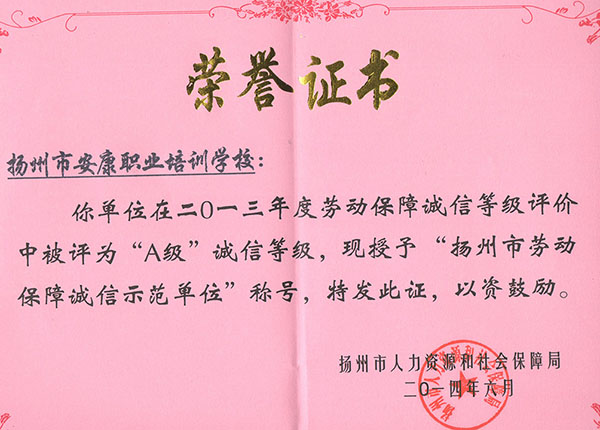 荣誉证书
扬州市安康职业培训学校：
你单位在二0一三年度劳动保障诚信等级评价
中被评为“A级”诚信等级，现授予“扬州市劳动
保障诚信示范单位”称号，特发此证，以资鼓励。
扬州市人力资源和社会保障局
二0一四年六月
扬州市人力资源和社会保障局